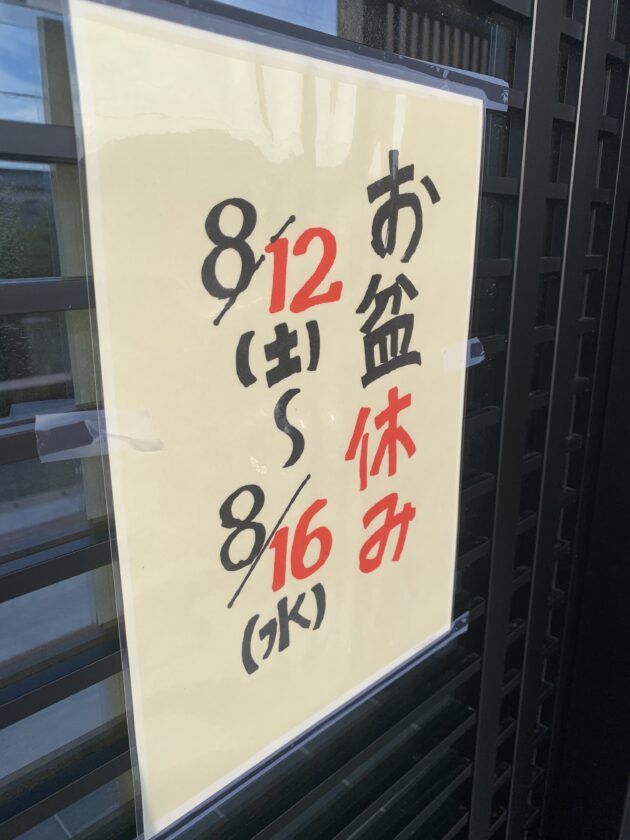 お盆休み
8/12(土)〜8/16(水)